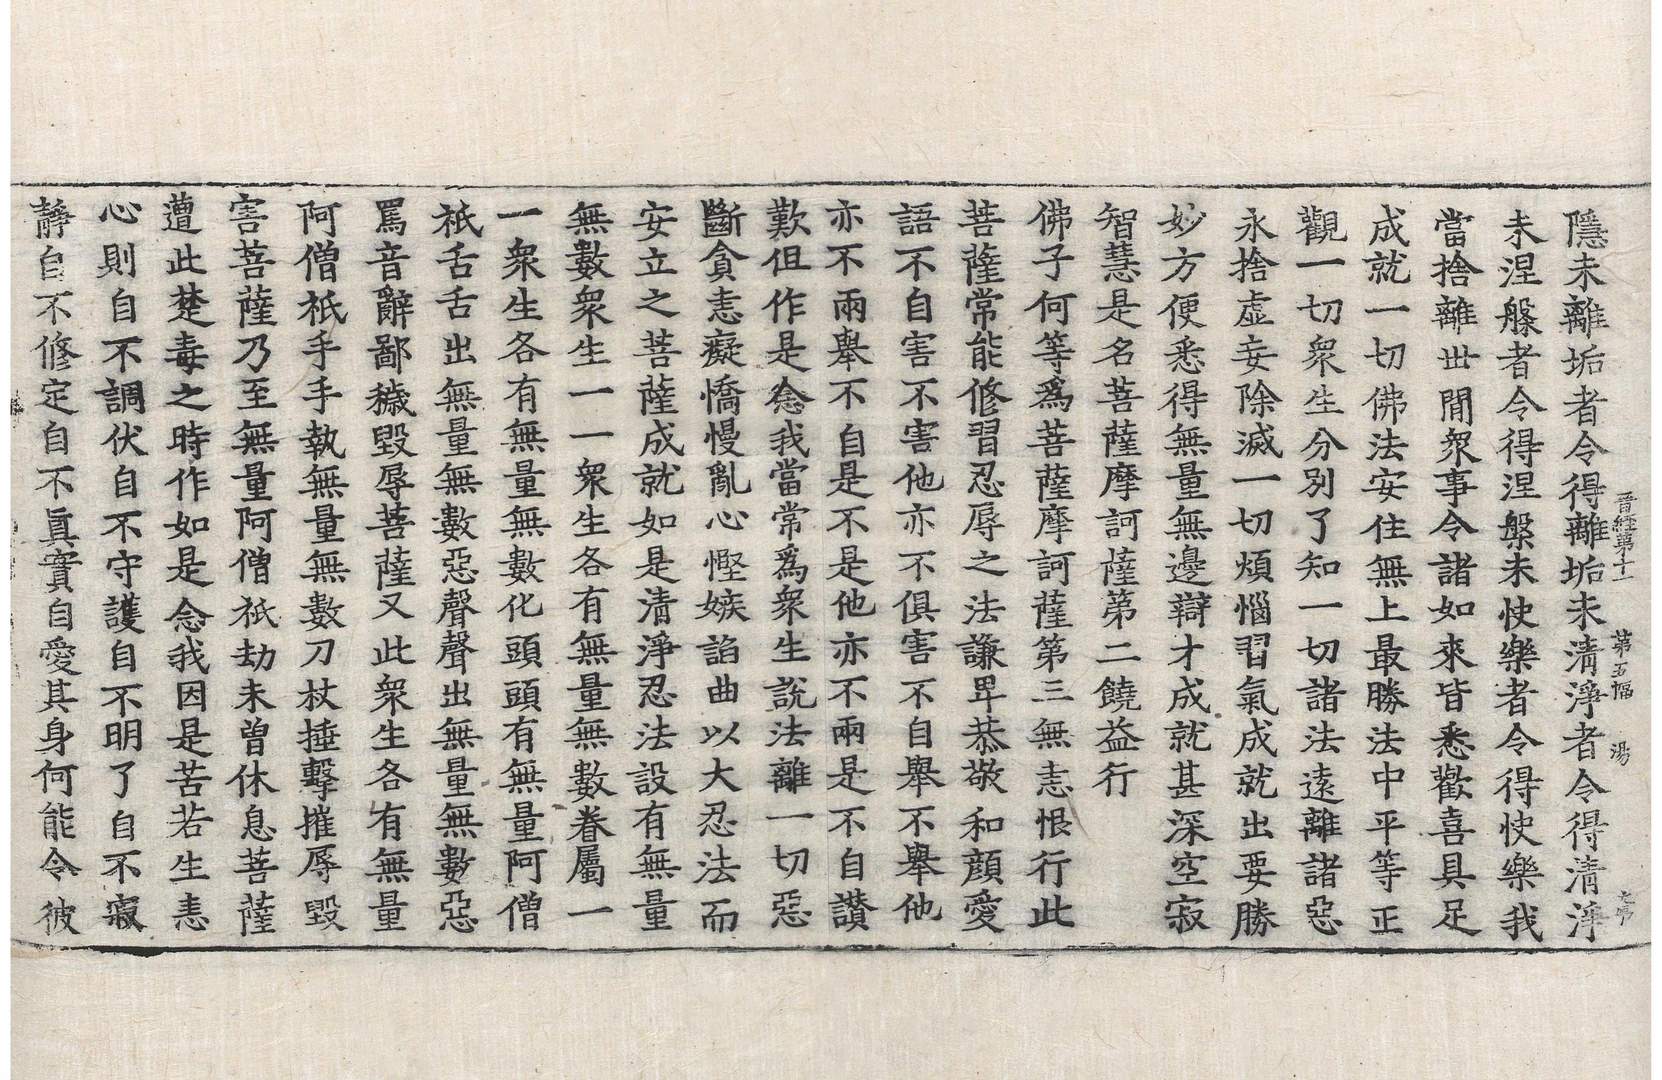 晉經第十一　第五幅　湯
隱未離垢者令得離垢未清淨者令得清淨
未涅槃者令得涅槃未快樂者令得快樂我
當捨離世間衆事令諸如來皆悉歡喜具足
成就一切佛法安住無上最勝法中平等正
觀一切衆生分別了知一切諸法遠離諸惡
永捨虛妄除滅一切煩惱習氣成就出要勝
妙方便悉得無量無邊辯才成就甚深空寂
智慧是名菩薩摩訶薩第二饒益行
佛子何等爲菩薩摩訶薩第三無恚恨行此
菩薩常能修習忍辱之法謙卑恭敬和顔愛
語不自害不害他亦不俱害不自舉不舉他
亦不兩舉不自是不是他亦不兩是不自讃
歎但作是念我當常爲衆生說法離一切惡
斷貪恚癡憍慢亂心慳嫉諂曲以大忍法而
安立之菩薩成就如是清淨忍法設有無量
無數衆生一一衆生各有無量無數眷屬一
一衆生各有無量無數化頭頭有無量阿僧
祇舌舌出無量無數惡聲聲出無量無數惡
罵音辭鄙穢毀辱菩薩又此衆生各有無量
阿僧祇手手執無量無數刀杖捶擊摧辱毀
害菩薩乃至無量阿僧祇劫未曽休息菩薩
遭此楚毒之時作如是念我因是苦若生恚
心則自不調伏自不守護自不明了自不寂
靜自不修定自不眞實自愛其身何能令彼